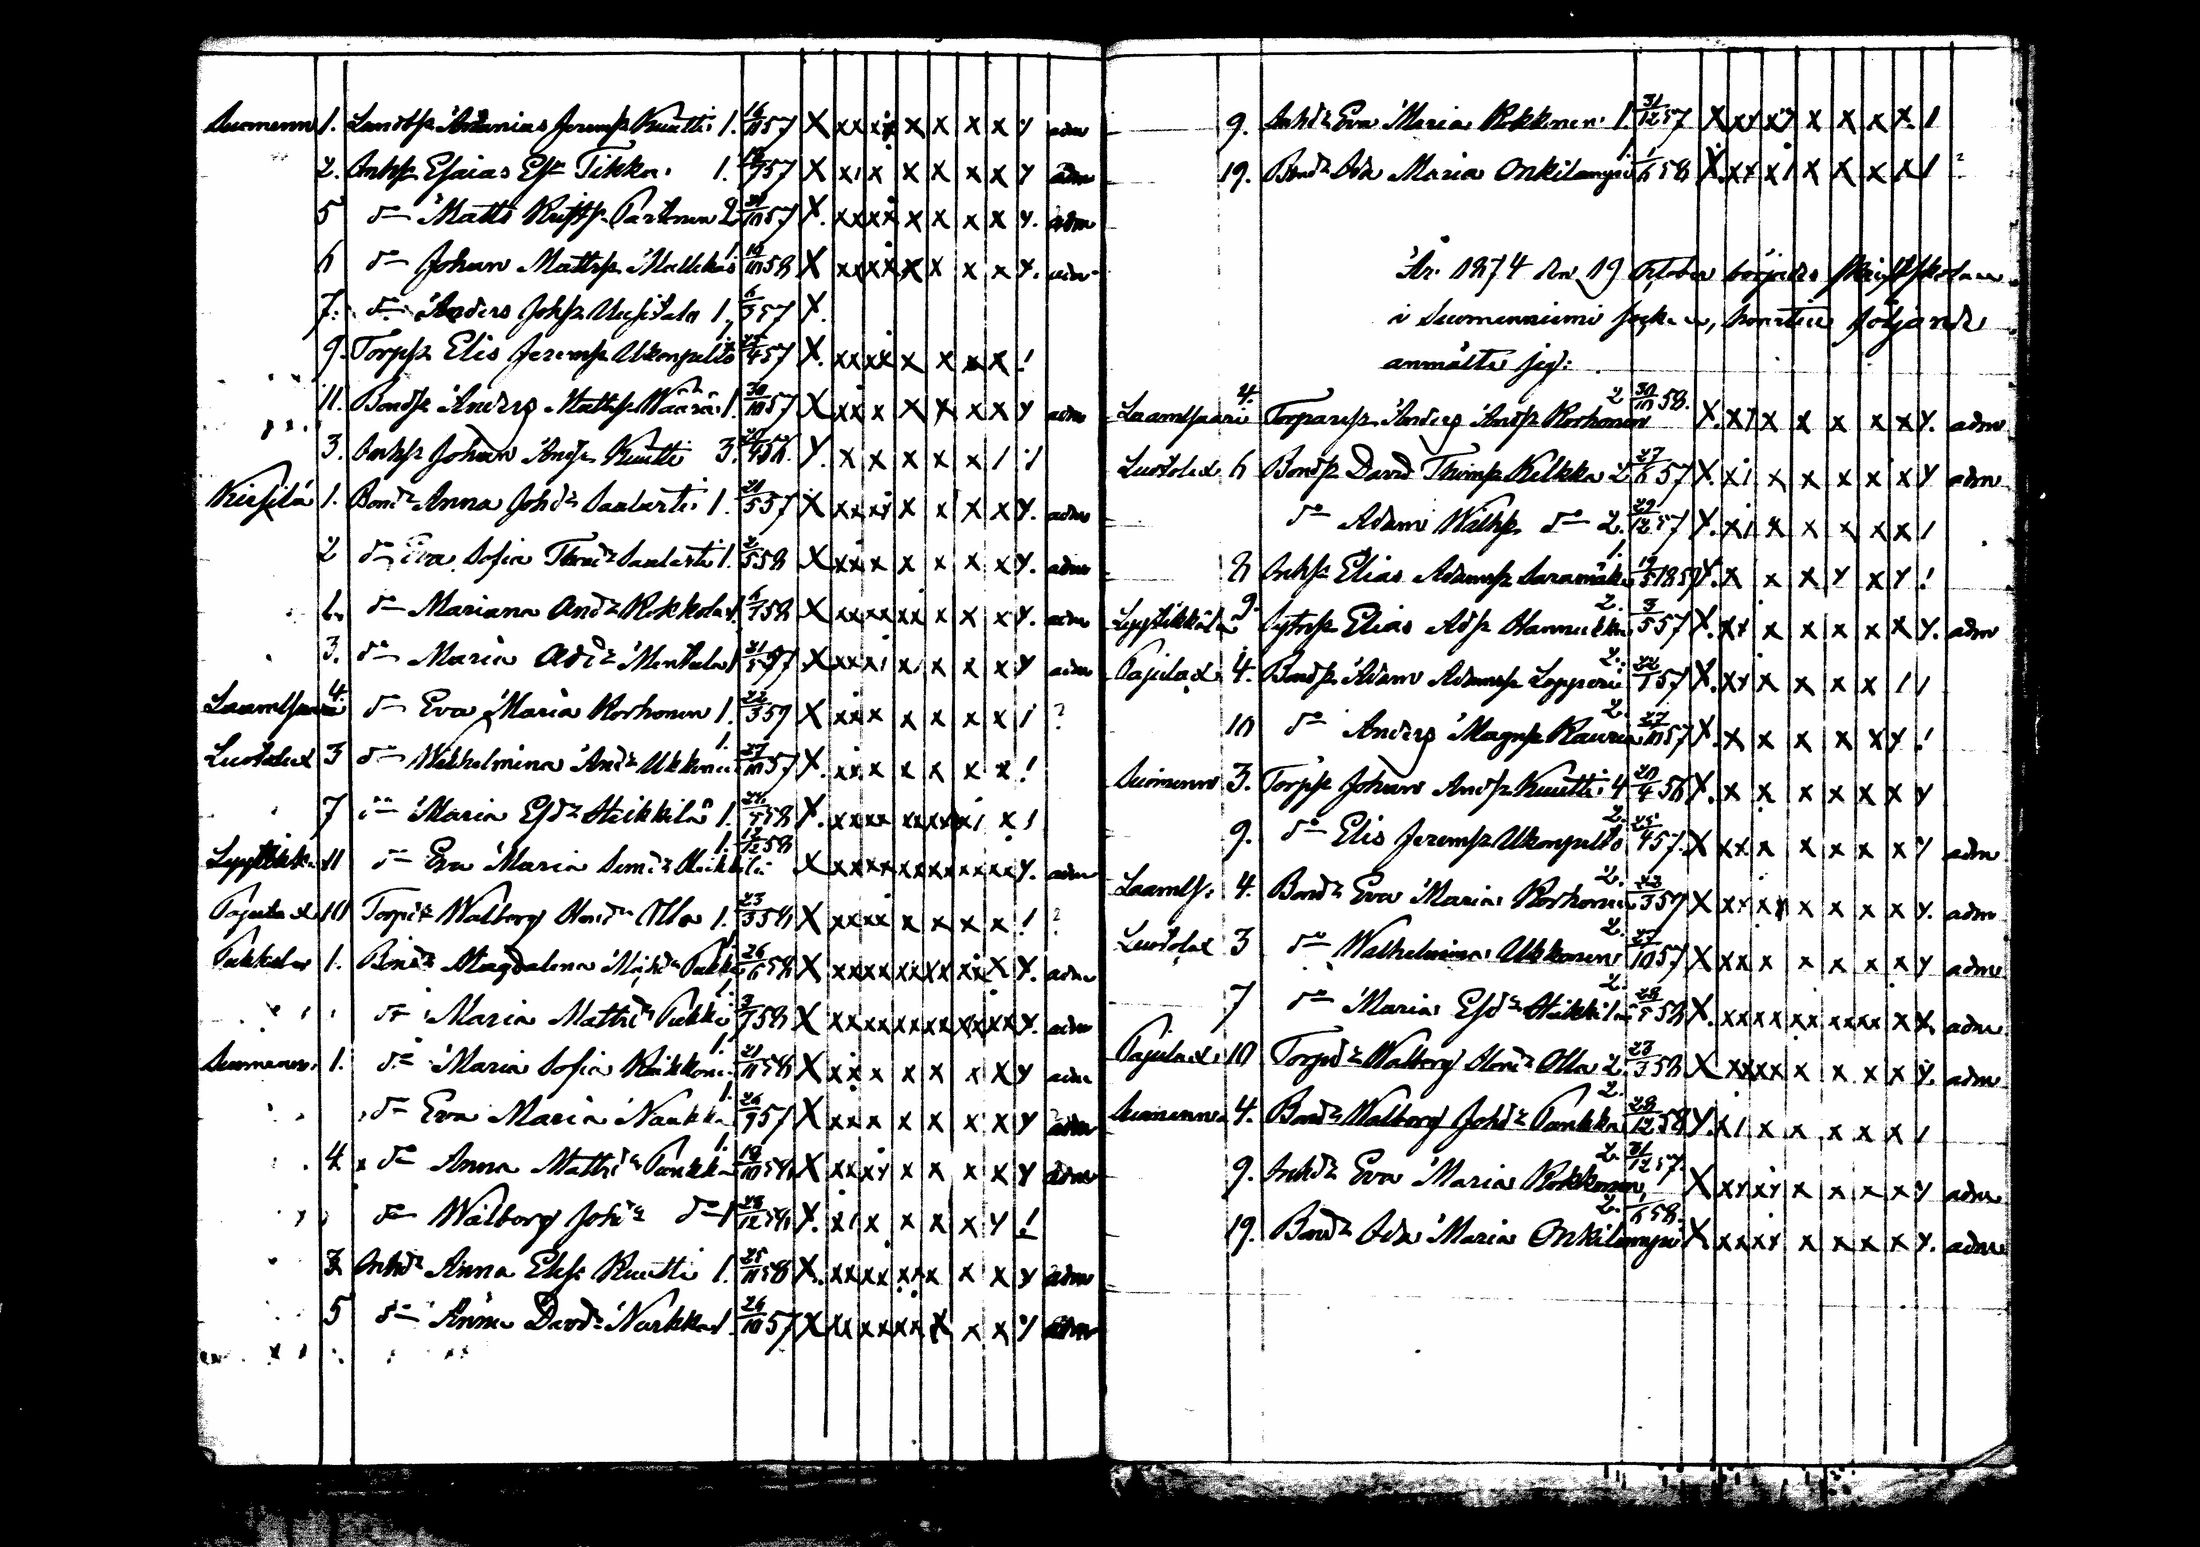 Suomenn 1. Landbs Ananias Jeremss Kuutti 1. 16/11 57 X xx xx x x x x y adm
2. Inhss Esaias Ess Tikka 1. 57 X x1 x x x x x y adm
5 do Matts Partanen 2 57 X. xx xx x x x x y. adm
6 do Johan Mattss 1. 19/10 58 X xx xx x x x x y. adm
7. do Anders Johss Uusitalo 1. 6/3 57 X.
9. Torpss Elis Jeremss Ukonpelto 1. 25/4 57 X. xx xx x x x x !
11. Bondss Anders Mattss Määrä 1. 30/10 57 X xx x x x x x y adm
3. Inhss Johan Andss Kuutti 3. 20/4 56. y. x x x x x 1 1
Kiesilä 1. Bondr Anna Johdr Saalasti 1. 21/5 57 X xx xx x x x x y. adm
2 do Eva Sofia Saalasti 1. 2/5 58 X xx x x x x x y. adm
do Mariana Anddr Rokkola 1. 58 X xx xx xx x x x y. adm
3. do Maria Addr Menttula 1 21/5 57 X xx x1 x x x x y adm
Laamasaari 4. do Eva Maria Korhonen 1. 22/3 59 X xx x x x x x 1 ?
Luotolax 3 do Wilhelmina Anddr Ukkonen 1. 27/10 57 X. xx x x x x x !
7 do Maria Esdr Heikkilä 1. 58 X. xx xx xx xx x1 x !
Lyytikkälä 11 do Eva Maria Simdr Heikkilä 1. 17/12 58 X xx xx xx xx xx xx y. adm
Pajulax 10 Torpdr Walborg Hendr Olla 1. 23/3 58 X xx xx x x x x ! ?
Pukkala 1. Bondr Magdalena Pukki 1. 26/6 58 X xx xx xx xx xx x y. adm
do Maria Mattsdr Pukki 1. 58 X xx xx xx xx xx xx y. adm
Suomenn. 1. do Maria Sofia Reikkonen 1. 21/11 58 X xx x x x x x y adm
do Eva Maria Naukka 1. 26/9 57 X xx x x x x x y adm
4 do Anna Mattsdr Pankka 1. 19/10 58 X xx xy x x x x y adm
do Walborg Johdr do 1 28/12 58 X. x1 x x x x y !
Inhdr Anna Elss Kuutti 1. 25/11 58 X. xx xx xx x x x y adm
5 do Anna Davdr Narkka 1. 26/10 57 X xx xx xx x x x y adm
9. Inhdr Eva Maria Rokkonen 1. 31/12 57 X xy xy x x x x. 1
19. Bondr Ada Maria Onkilampi 1. 1/6 58 X. xy x1 x x x x 1 ?
År 1874 den 19 Oktober börjades skriftskolan
i Suomenniemi socken, hvartill följande
anmälte sig:
Laamasaari 4. Torparess Anders Andss Korhonen 2 30/10 58. X. x1 x x x x x y. adm
Luotolax 6 Bondss David Thomss Kilkka 2 27/6 57 X. x1 x x x x x y adm
do Adam Wilhss do 2. 29/12 57 X. x1 x x x x x 1
8 Inhss Elias Adamss Saramäki 1. 19/5 1859 X. x x x y x y !
Lyytikkälä 9. Sytnss Elias Adss Hannukka 2. 3/5 57 X. xy x x x x x y. adm
Pajulax 4. Bondss Adam Adamss Lopperi 2. 22/1 57 X. xy x x x x 1 1
10 do Anders Magnss Kauria 2. 27/10 57 X. x x x x x y !
Suomenn 3. Torpss Johan Andss Kuutti 4 20/4 56 X. x x x x x x y
9. do Elis Jeremss Ukonpelto 2. 25/4 57. X xx x x x x x y adm
Laamss. 4. Bondr Eva Maria Korhonen 2. 22/3 59 X xy xy x x x x y. adm
Luotolax 3 do Walhelmina Ukkonen 2. 27/10 57 X xx x x x x x y adm
7 do Maria Esdr Heikkilä 2. 58 X. xx xx xx xx xx x y. adm
Pajulax 10 Torpdr Walborg Hendr Olla 2. 23/3 58 X xx xx x x x x y. adm
Suomenn 4. Bondr Walborg Johdr Pankka 2. 28/12 58 y. x1 x x x x x 1
9. Inhdr Eva Maria Rokkonen 2. 31/12 57. X xy xy x x x x y adm
19. Bondr Ada Maria Onkilampi 2. 1/6 58. X xx xy x x x x y. adm